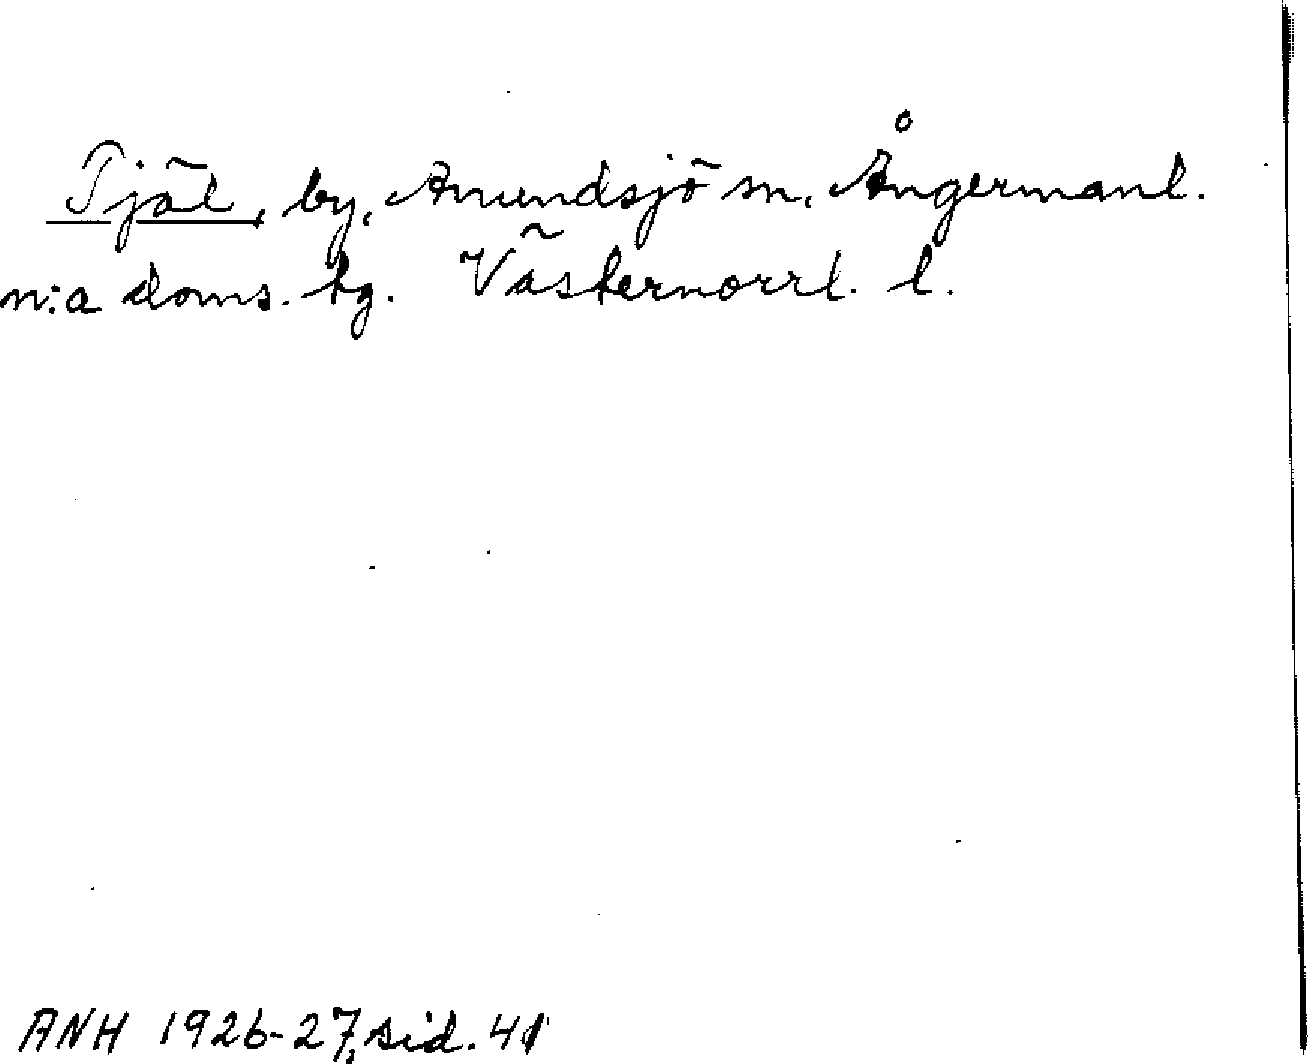 Tjäl, by, Anundsjö sn, Ångermanl.
n:a doms. tg. Västernorrl. l.
ANH 1926-27, sid. 41